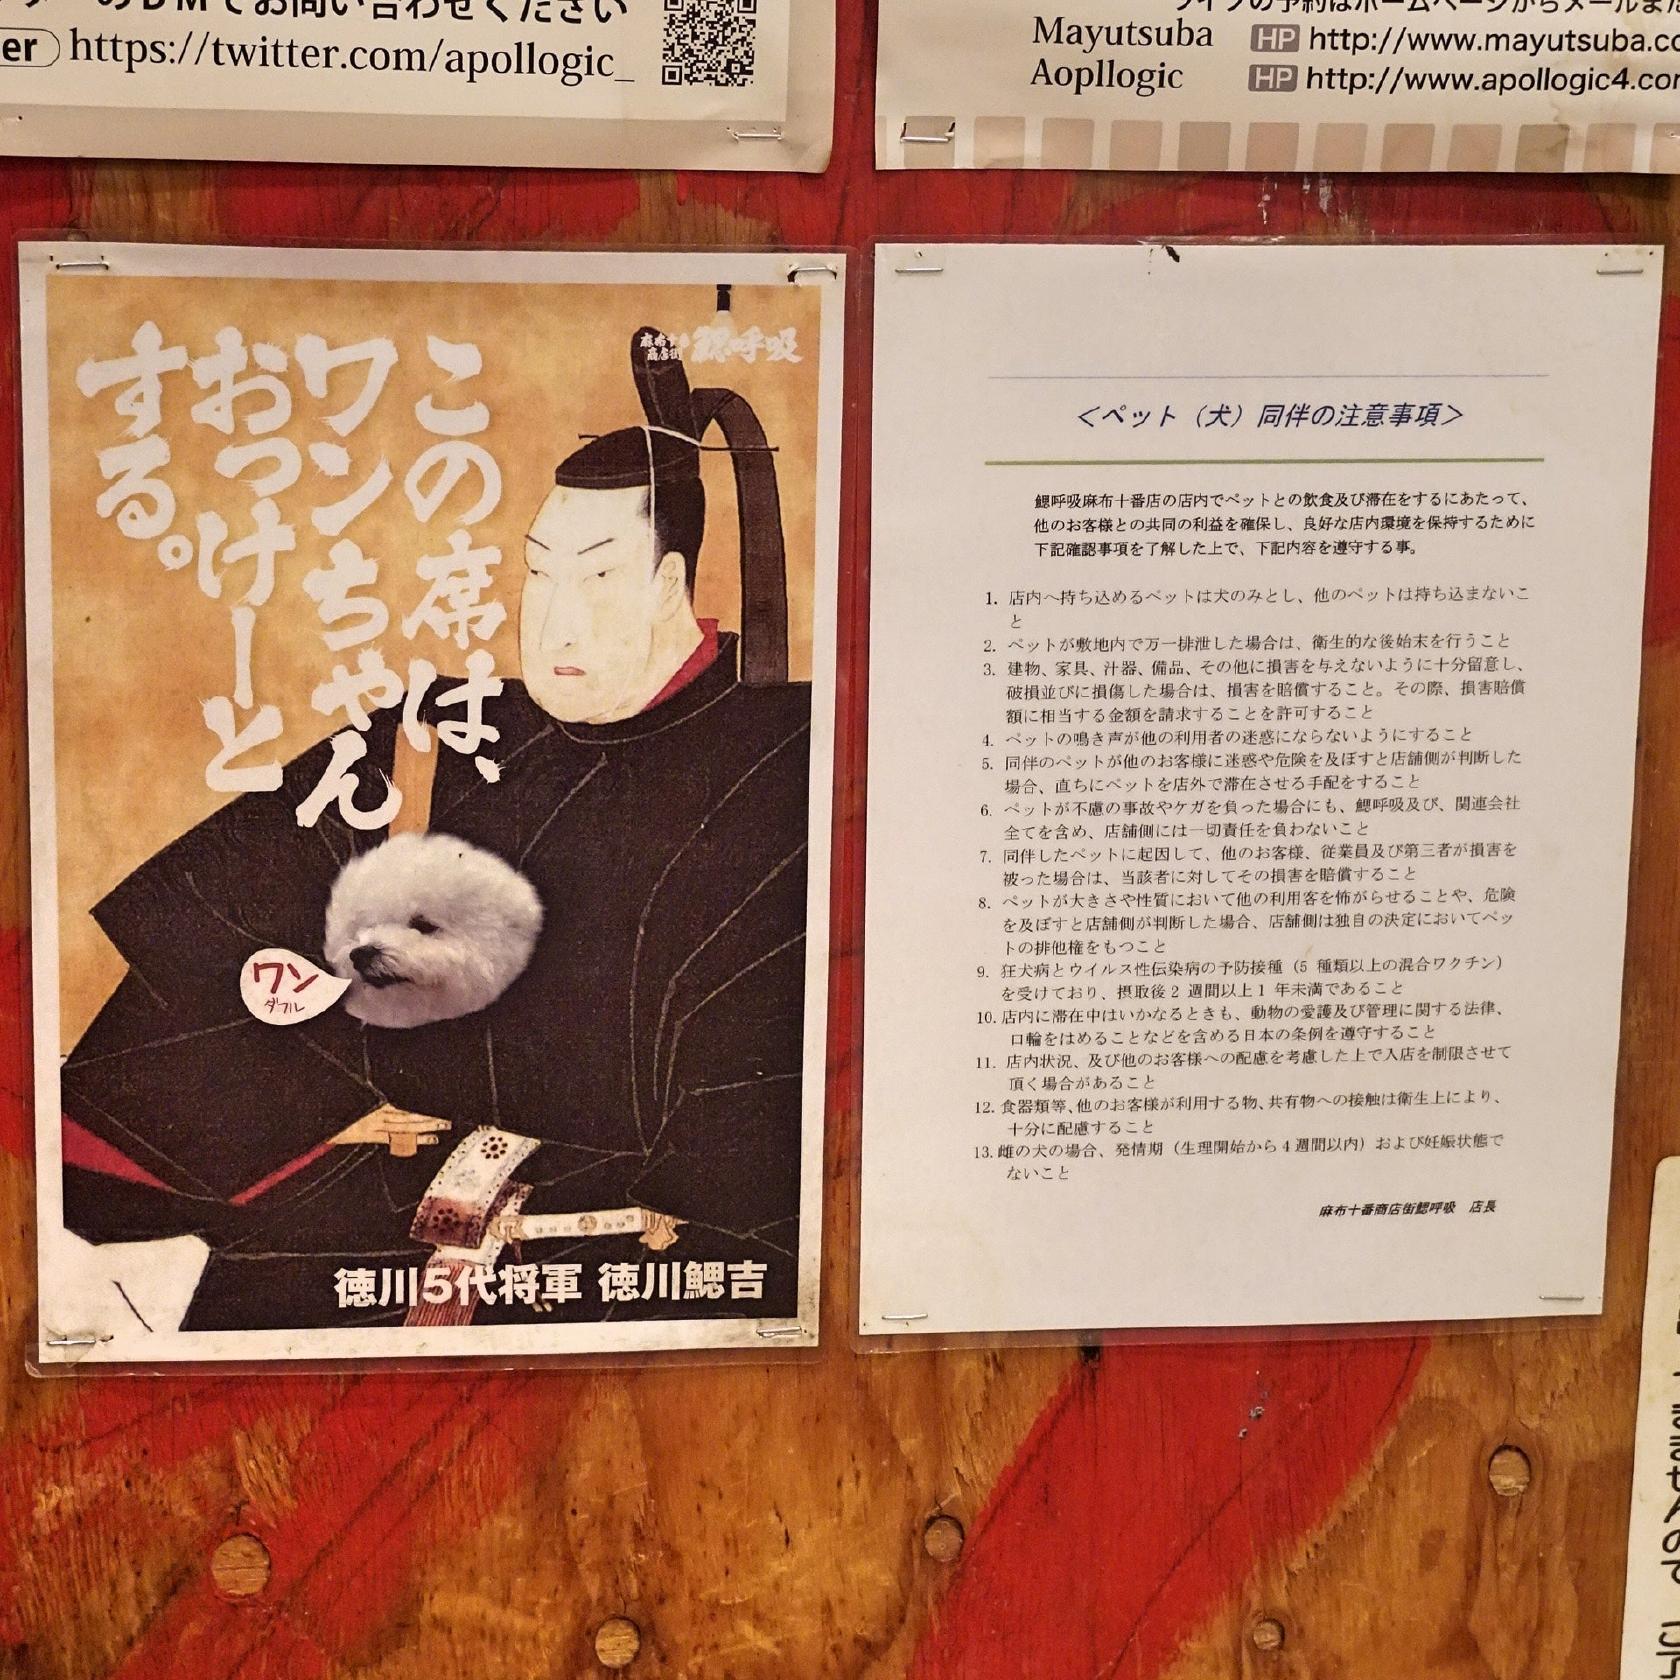 のDMでお問い合わせください
er https://twitter.com/apollogic_
Mayutsuba HP http://www.mayutsuba.co
Aopllogic HP http://www.apollogic4.com
麻布十番
商店街
鰓呼吸
この席は、
ワンちゃん
おっけーと
する。
ワン
ダフル
徳川5代将軍 徳川鰓吉
<ペット（犬）同伴の注意事項>
鰓呼吸麻布十番店の店内でペットとの飲食及び滞在をするにあたって、
他のお客様との共同の利益を確保し、良好な店内環境を保持するために
下記確認事項を了解した上で、下記内容を遵守する事。
1. 店内へ持ち込めるペットは犬のみとし、他のペットは持ち込まないこ
と
2. ペットが敷地内で万一排泄した場合は、衛生的な後始末を行うこと
3. 建物、家具、汁器、備品、その他に損害を与えないように十分留意し、
破損並びに損傷した場合は、損害を賠償すること。その際、損害賠償
額に相当する金額を請求することを許可すること
4. ペットの鳴き声が他の利用者の迷惑にならないようにすること
5. 同伴のペットが他のお客様に迷惑や危険を及ぼすと店舗側が判断した
場合、直ちにペットを店外で滞在させる手配をすること
6. ペットが不慮の事故やケガを負った場合にも、鰓呼吸及び、関連会社
全てを含め、店舗側には一切責任を負わないこと
7. 同伴したペットに起因して、他のお客様、従業員及び第三者が損害を
被った場合は、当該者に対してその損害を賠償すること
8. ペットが大きさや性質において他の利用客を怖がらせることや、危険
を及ぼすと店舗側が判断した場合、店舗側は独自の決定においてペッ
トの排他権をもつこと
9. 狂犬病とウイルス性伝染病の予防接種（5 種類以上の混合ワクチン）
を受けており、摂取後 2 週間以上 1 年未満であること
10. 店内に滞在中はいかなるときも、動物の愛護及び管理に関する法律、
口輪をはめることなどを含める日本の条例を遵守すること
11. 店内状況、及び他のお客様への配慮を考慮した上で入店を制限させて
頂く場合があること
12. 食器類等、他のお客様が利用する物、共有物への接触は衛生上により、
十分に配慮すること
13. 雌の犬の場合、発情期（生理開始から 4 週間以内）および妊娠状態で
ないこと
麻布十番商店街鰓呼吸 店長